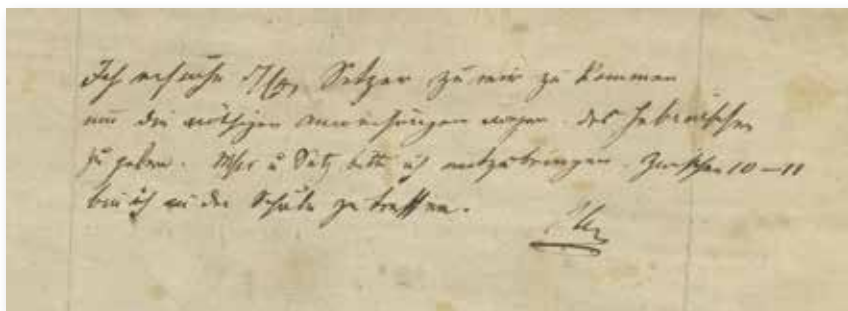 Ich ersuche Setzer zu mir zu kommen
um die nöthigen Anweisungen wegen des Hebräischen
zu geben. Mscr u Satz bitte ich mitzubringen. Zwischen 10 – 11
bin ich in der Schule zu treffen.